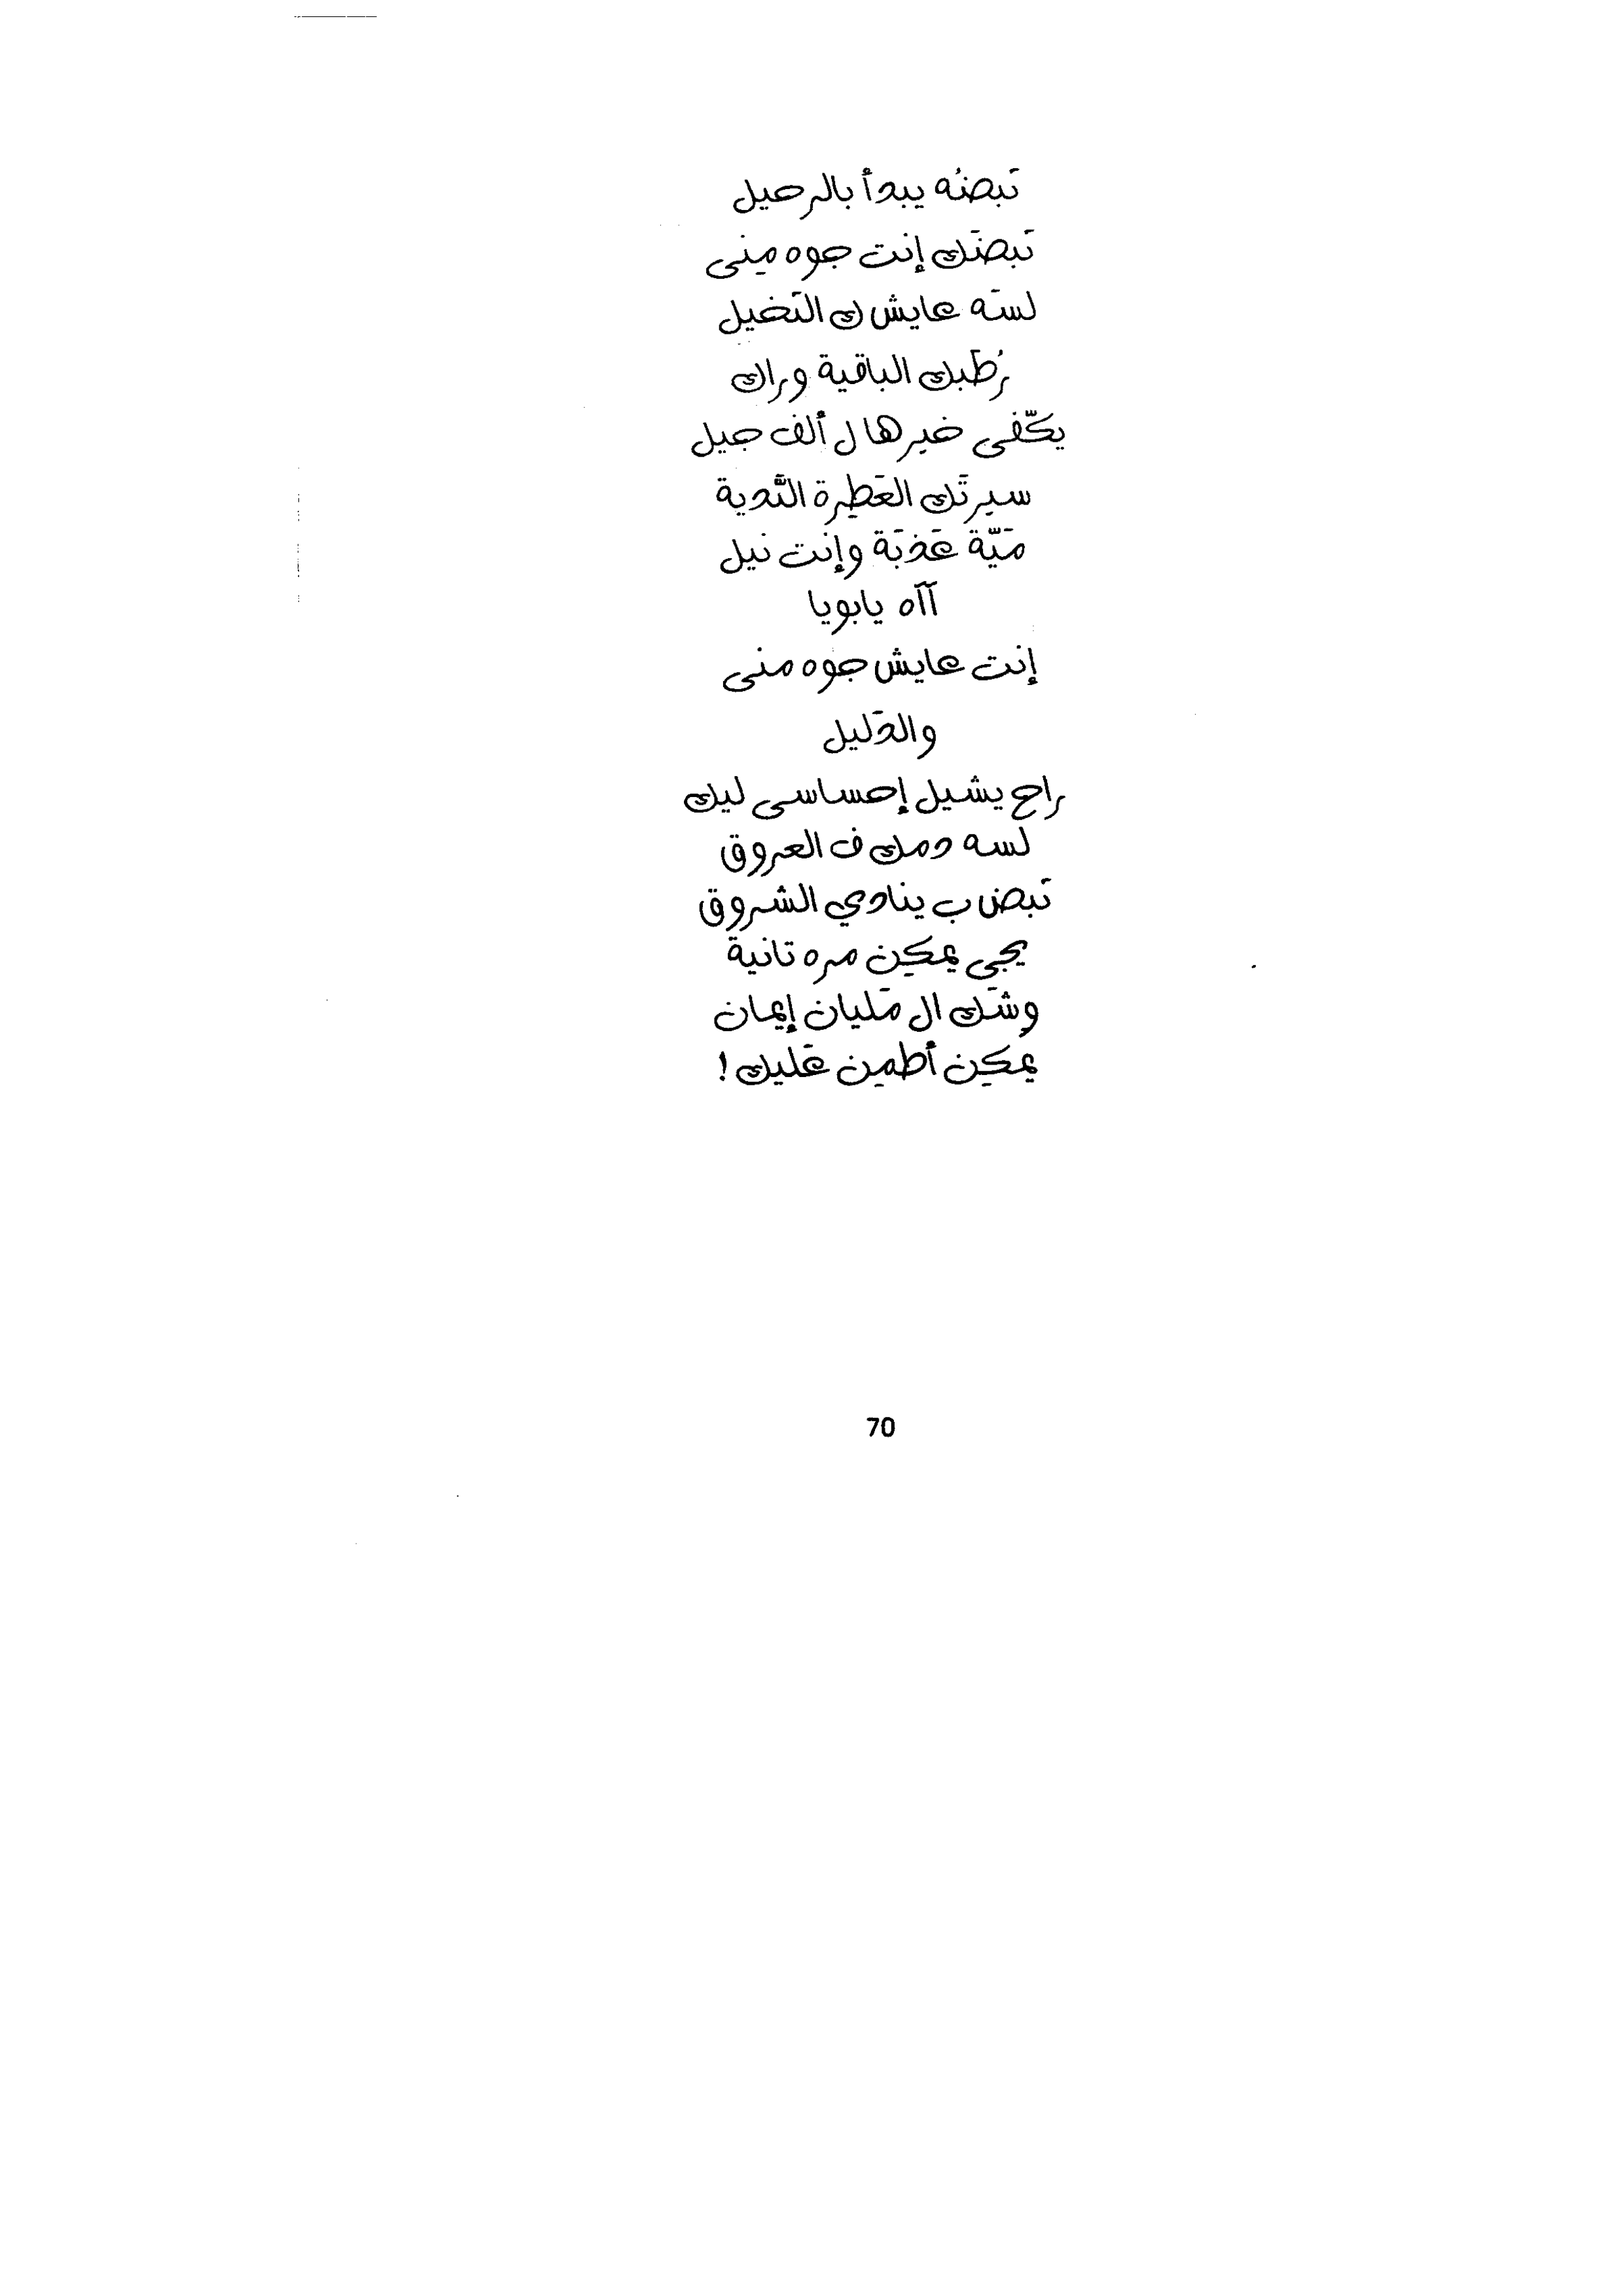 نَبضُه يبدأ بالرحيل
نَبضَك إنت جوه مِينى
لسَه عايش ك النَخيل
رُطَبك الباقية وراك
يكَفّى خيرها ل ألف جيل
سيرتَك العَطِرة النَّدية
مَيّة عَذبَة وإنت نيل
آآه يابويا
إنت عايش جوه منى
والدَليل
راح يشيل إحساسى ليك
لسه دمك ف العروق
نَبض ب ينادي الشروق
يجى يمكن مره تانية
وشَك ال مَليان إيمان
يمكِن أطمِن عَليك !
70